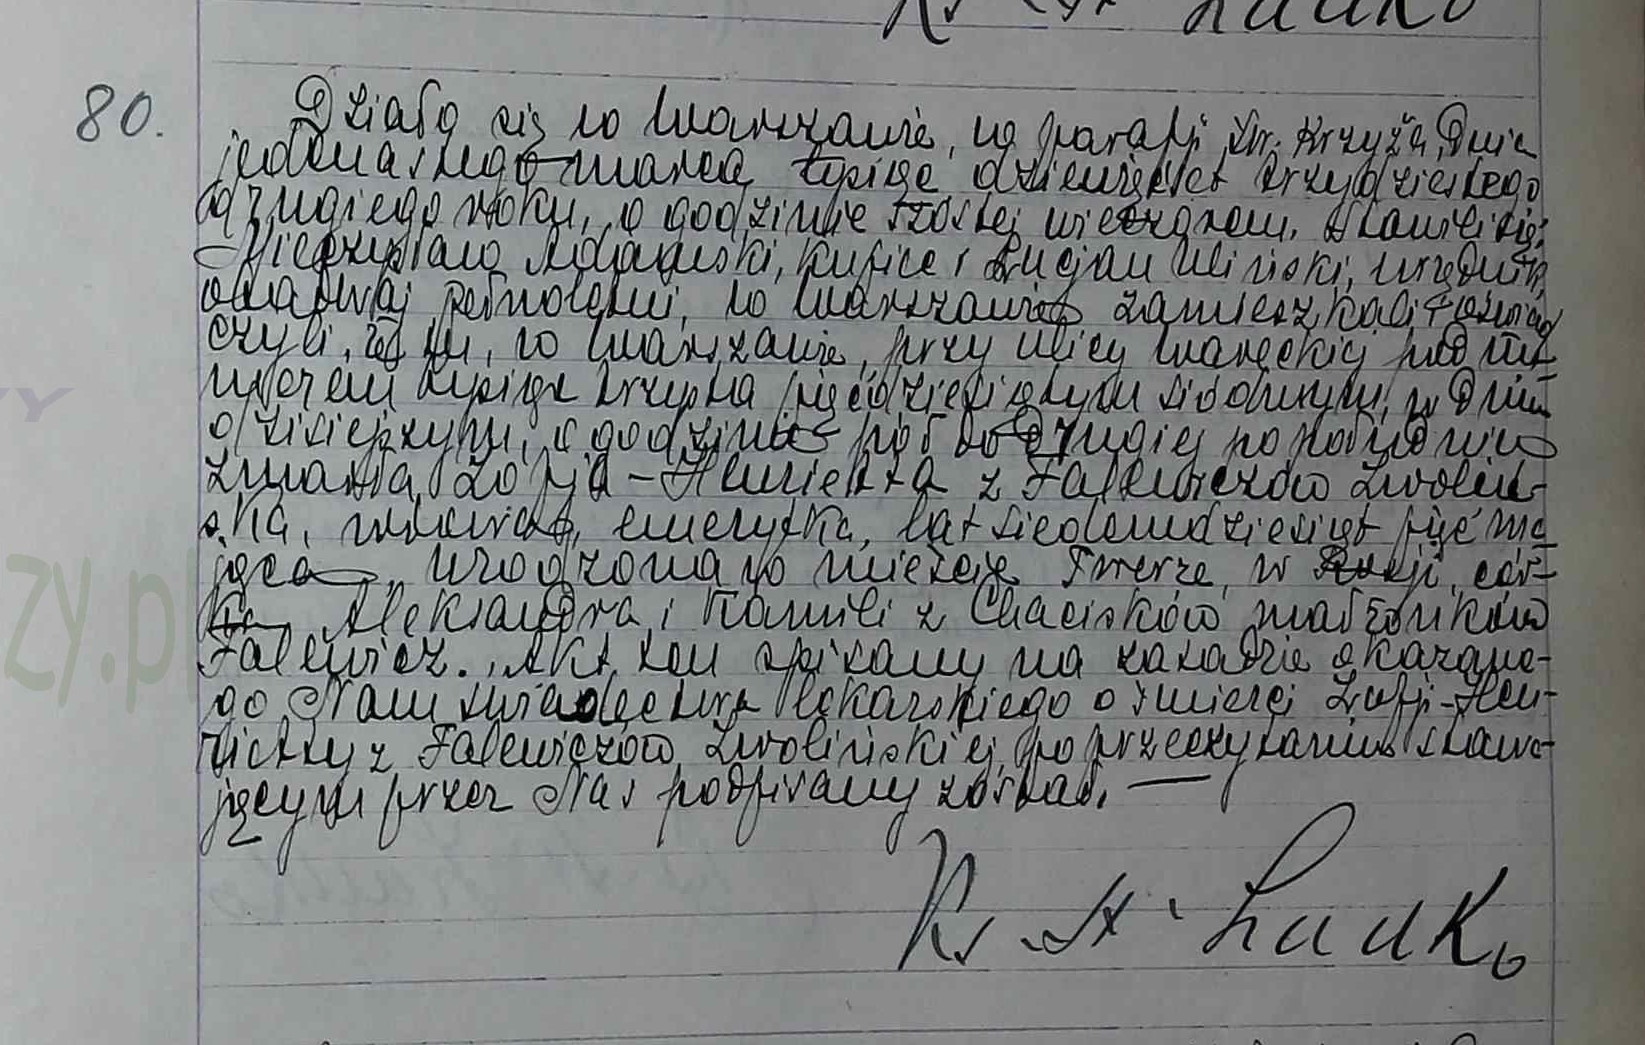 80.
Działo się w Warszawie, w parafji Św. Krzyża, Dnia
jedenastego marca tysiąc dziewięćset trzydziestego
drugiego roku, o godzinie szóstej wieczorem. Stawili się:
Mieczysław kupiec i Lucjan Uliński, urzędnik,
obadwaj pełnoletni, w Warszawie zamieszkali i oświad
czyli, że tu, w Warszawie, przy ulicy Wareckiej pod nu-
merem tysiąc trzysta pięćdziesiątym siódmym, w dniu
dzisiejszym, o godzinie pół do drugiej po południu
zmarła Zofja-Henrietta z Falewiczów Zwoliń-
ska, wdowa, emerytka, lat siedemdziesiąt pięć ma
jąca, urodzona w mieście Twerze, w Rosji, cór-
ka Aleksandra i Kamili z Chacisków małżonków
Falewicz. Akt ten spisany na zasadzie okazane-
go Nam świadectwa lekarskiego o śmierci Zofji-Hen-
rietty z Falewiczów Zwolińskiej, po przeczytaniu stawa-
jącym przez Nas podpisany został.
Ks. St.